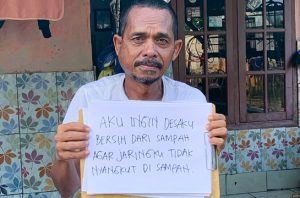 AKU INGIN DESAKU
BERSIH DARI SAMPAH
AGAR JARINGKU TIDAK
NYANGKUT DI SAMPAH.